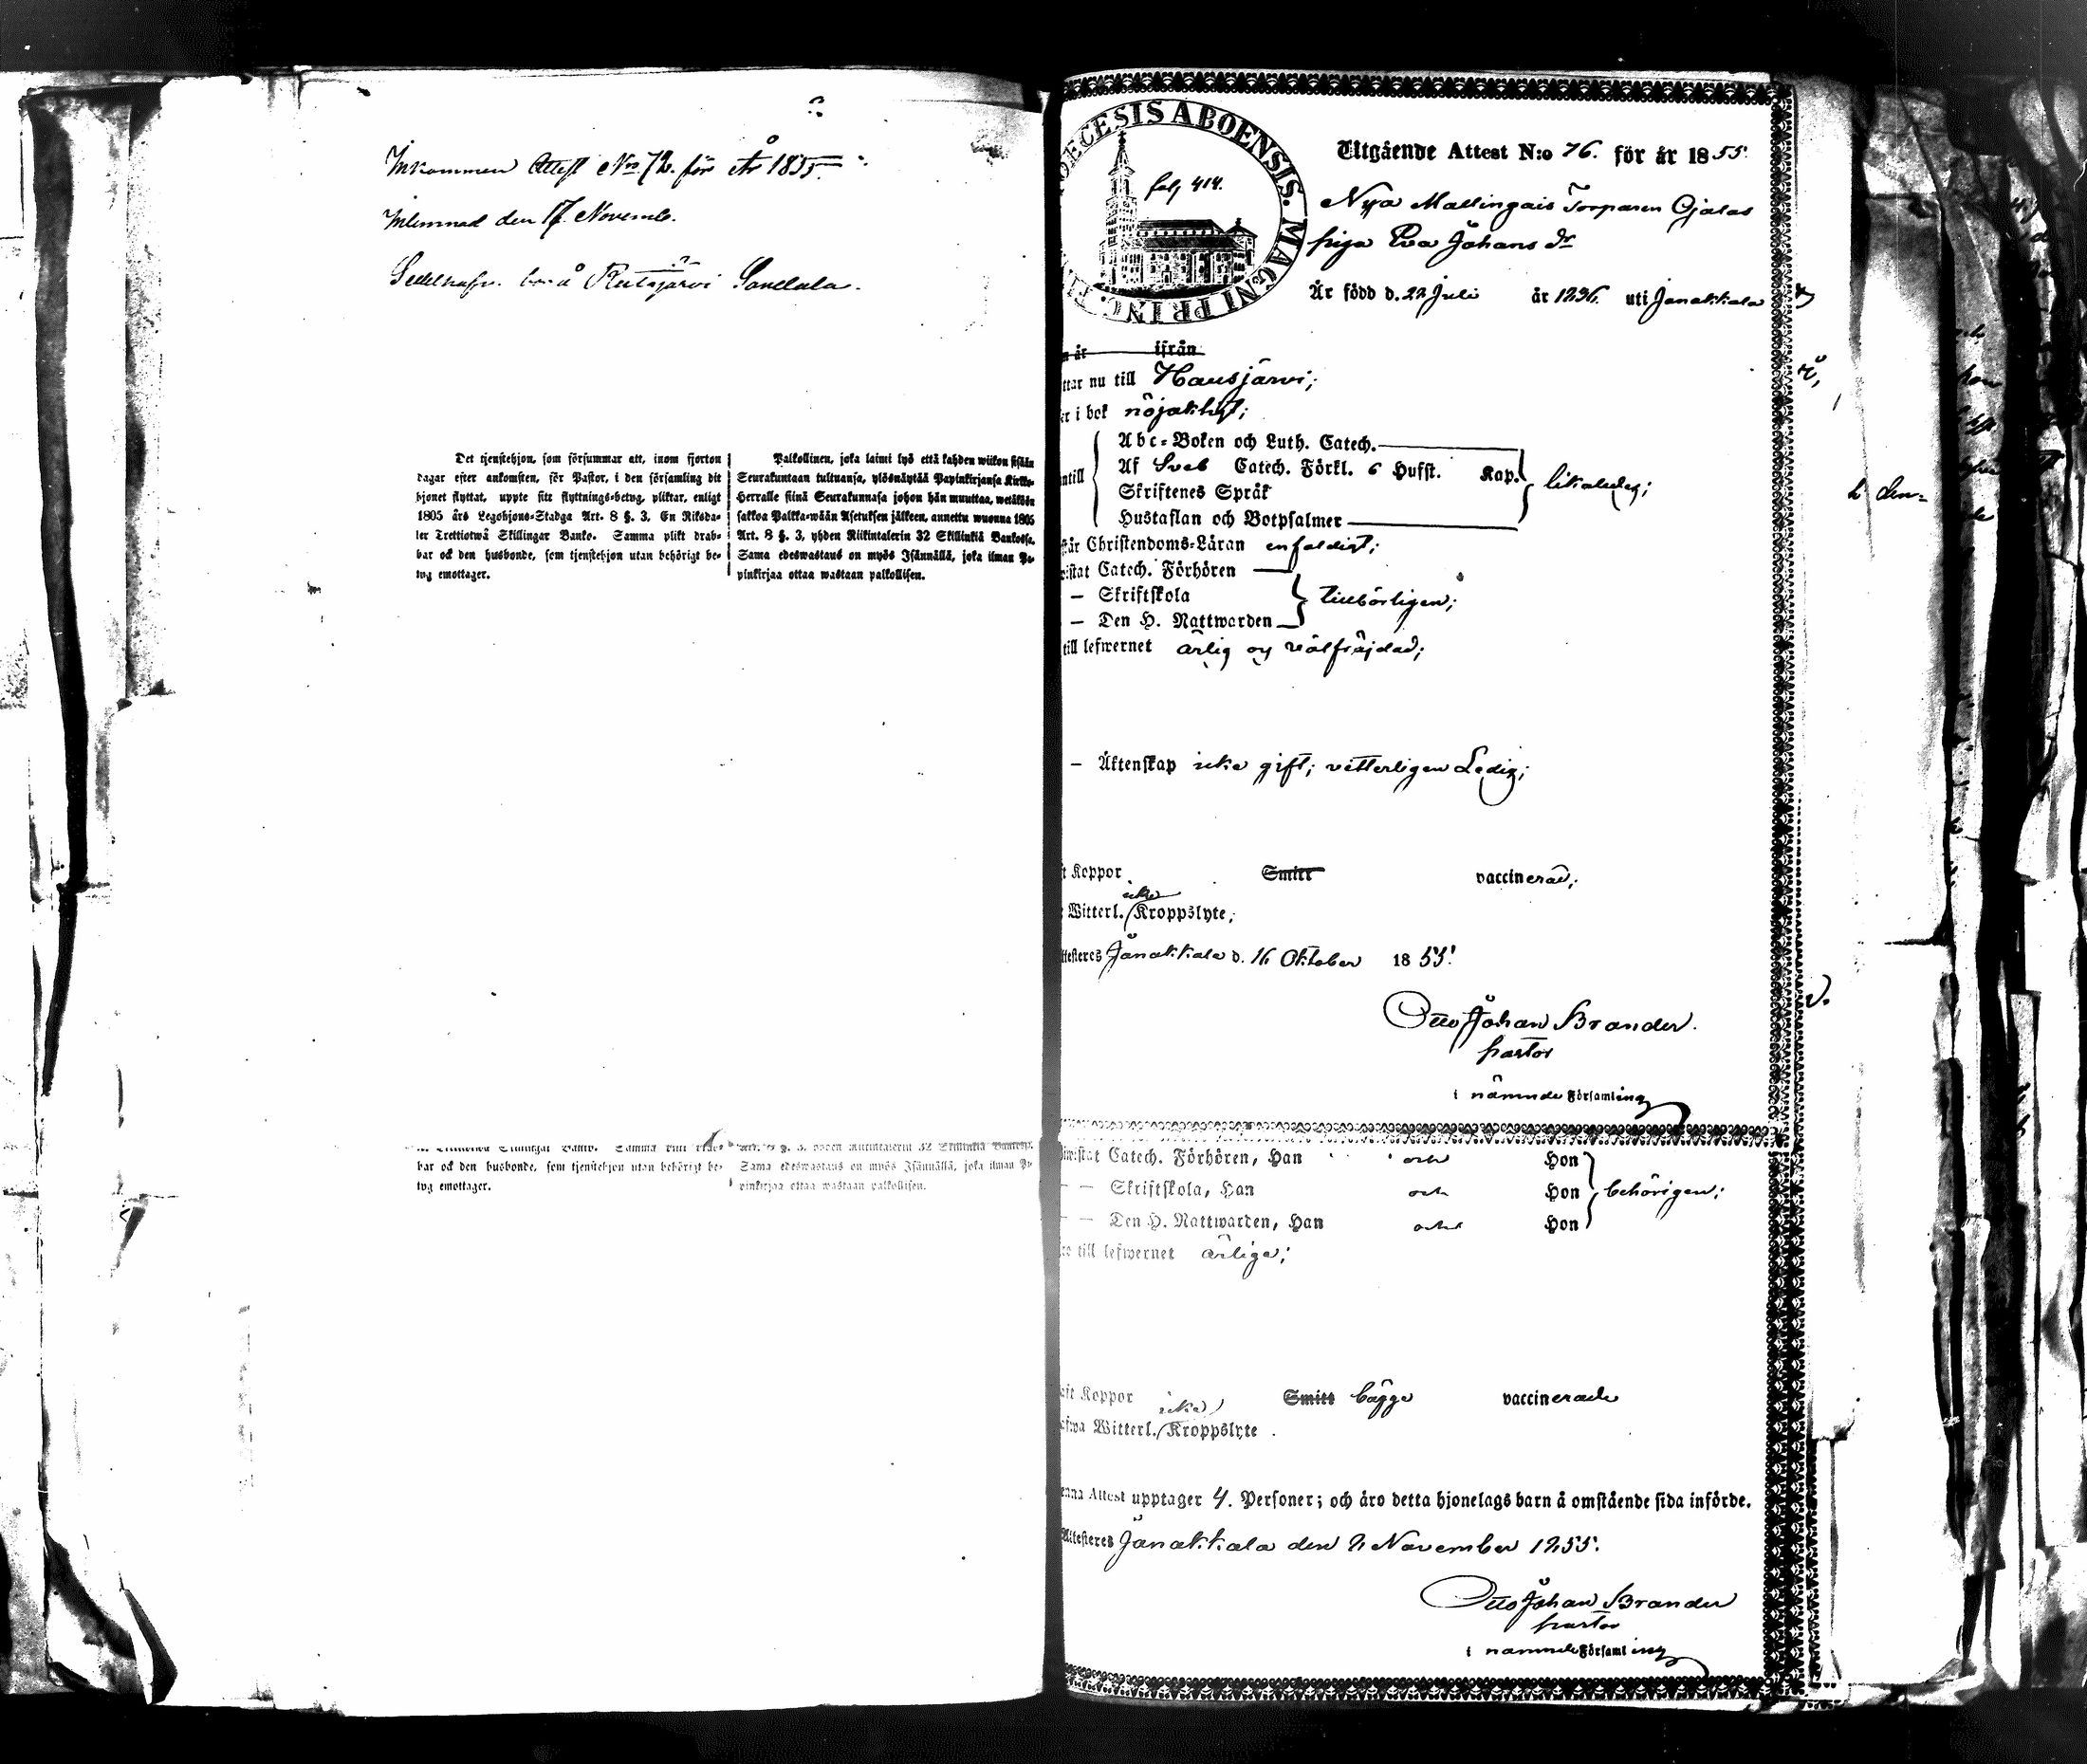 Inkommen Attest No 72. för År 1855.
Inlemnad den 17 Novemb.
Rutajärvi Sandala.
Det tjenstehjon, som försummar att, inom fjorton
dagar efter ankomsten, för Pastor, i den församling dit
hjonet flyttat, uppte sitt flyttnings-betyg, pliktar, enligt
1805 års Legohjons-Stadga Art. 8 §. 3, En Riksda-
ler Trettiotwå Skillingar Banko. Samma plikt drab-
bar ock den husbonde, som tjenstehjon utan behörigt be-
tyg emottager.
Palkollinen, joka laimi lyö että kahden wiikon sisään
Seurakuntaan tultuansa, ylösnäytää Papinkirjansa Kirkko-
Herralle siinä Seurakunnasa johon hän muuttaa, wetäköön
sakkoa Palkka-wään Asetuksen jälkeen, annettu wuonna 1805
Art. 8 §. 3, yhden Riikintalerin 32 Skillinkiä Bankossa.
Sama edeswastaus on myös Isännällä, joka ilman Pa-
pinkirjaa ottaa wastaan palkollisen.
bar ock den husbonde, som tjenstehjon utan behörigt be-
tyg emottager.
Sama edeswastaus on myös Isännällä, joka ilman Pa-
pinkirjaa ottaa wastaan palkollisen.
ECESIS ABOENSIS. MAGNI PRINC.
fol. 414.
Utgående Attest N:o 76. för år 1855.
Nya Mallingais Torparen Ojalas
piga Eva Johans dr
År född d. 22 Juli år 1836. uti Janakkala
år ifrån
ttar nu till Hausjärvi;
er i bok nöjaktigt;
ntill
Abc-Boken och Luth. Catech.
Af Sveb Catech. Förkl. 6 Hufst. Kap.
Skriftenes Språk
Hustaflan och Botpsalmer
likaledes;
står Christendoms-Läran enfaldigt;
istat Catech. Förhören
— Skriftskola
— Den H. Nattwarden
tillbörligen;
till lefwernet ärlig och välfräjdad;
— Äktenskap icke gift; vetterligen Ledig;
t Koppor Smitt vaccinerad;
icke
Witterl. Kroppslyte;
ttesteres Janakkala d. 16 Oktober 1855.
Otto Johan Brander.
pastor
i nämnde Församling
wistat Catech. Förhören, Han och Hon
— — Skriftskola, Han och Hon
— — Den H. Nattwarden, Han och Hon
behörigen;
ro till lefwernet ärliga;
ft Koppor Smitt bägge vaccinerade
icke
afwa Witterl. Kroppslyte.
enna Attest upptager 4. Personer; och äro detta hjonelags barn å omstående sida införde.
Attesteres Janakkala den 2 November 1855.
Otto Johan Brander
pastor
i nämnde Församling